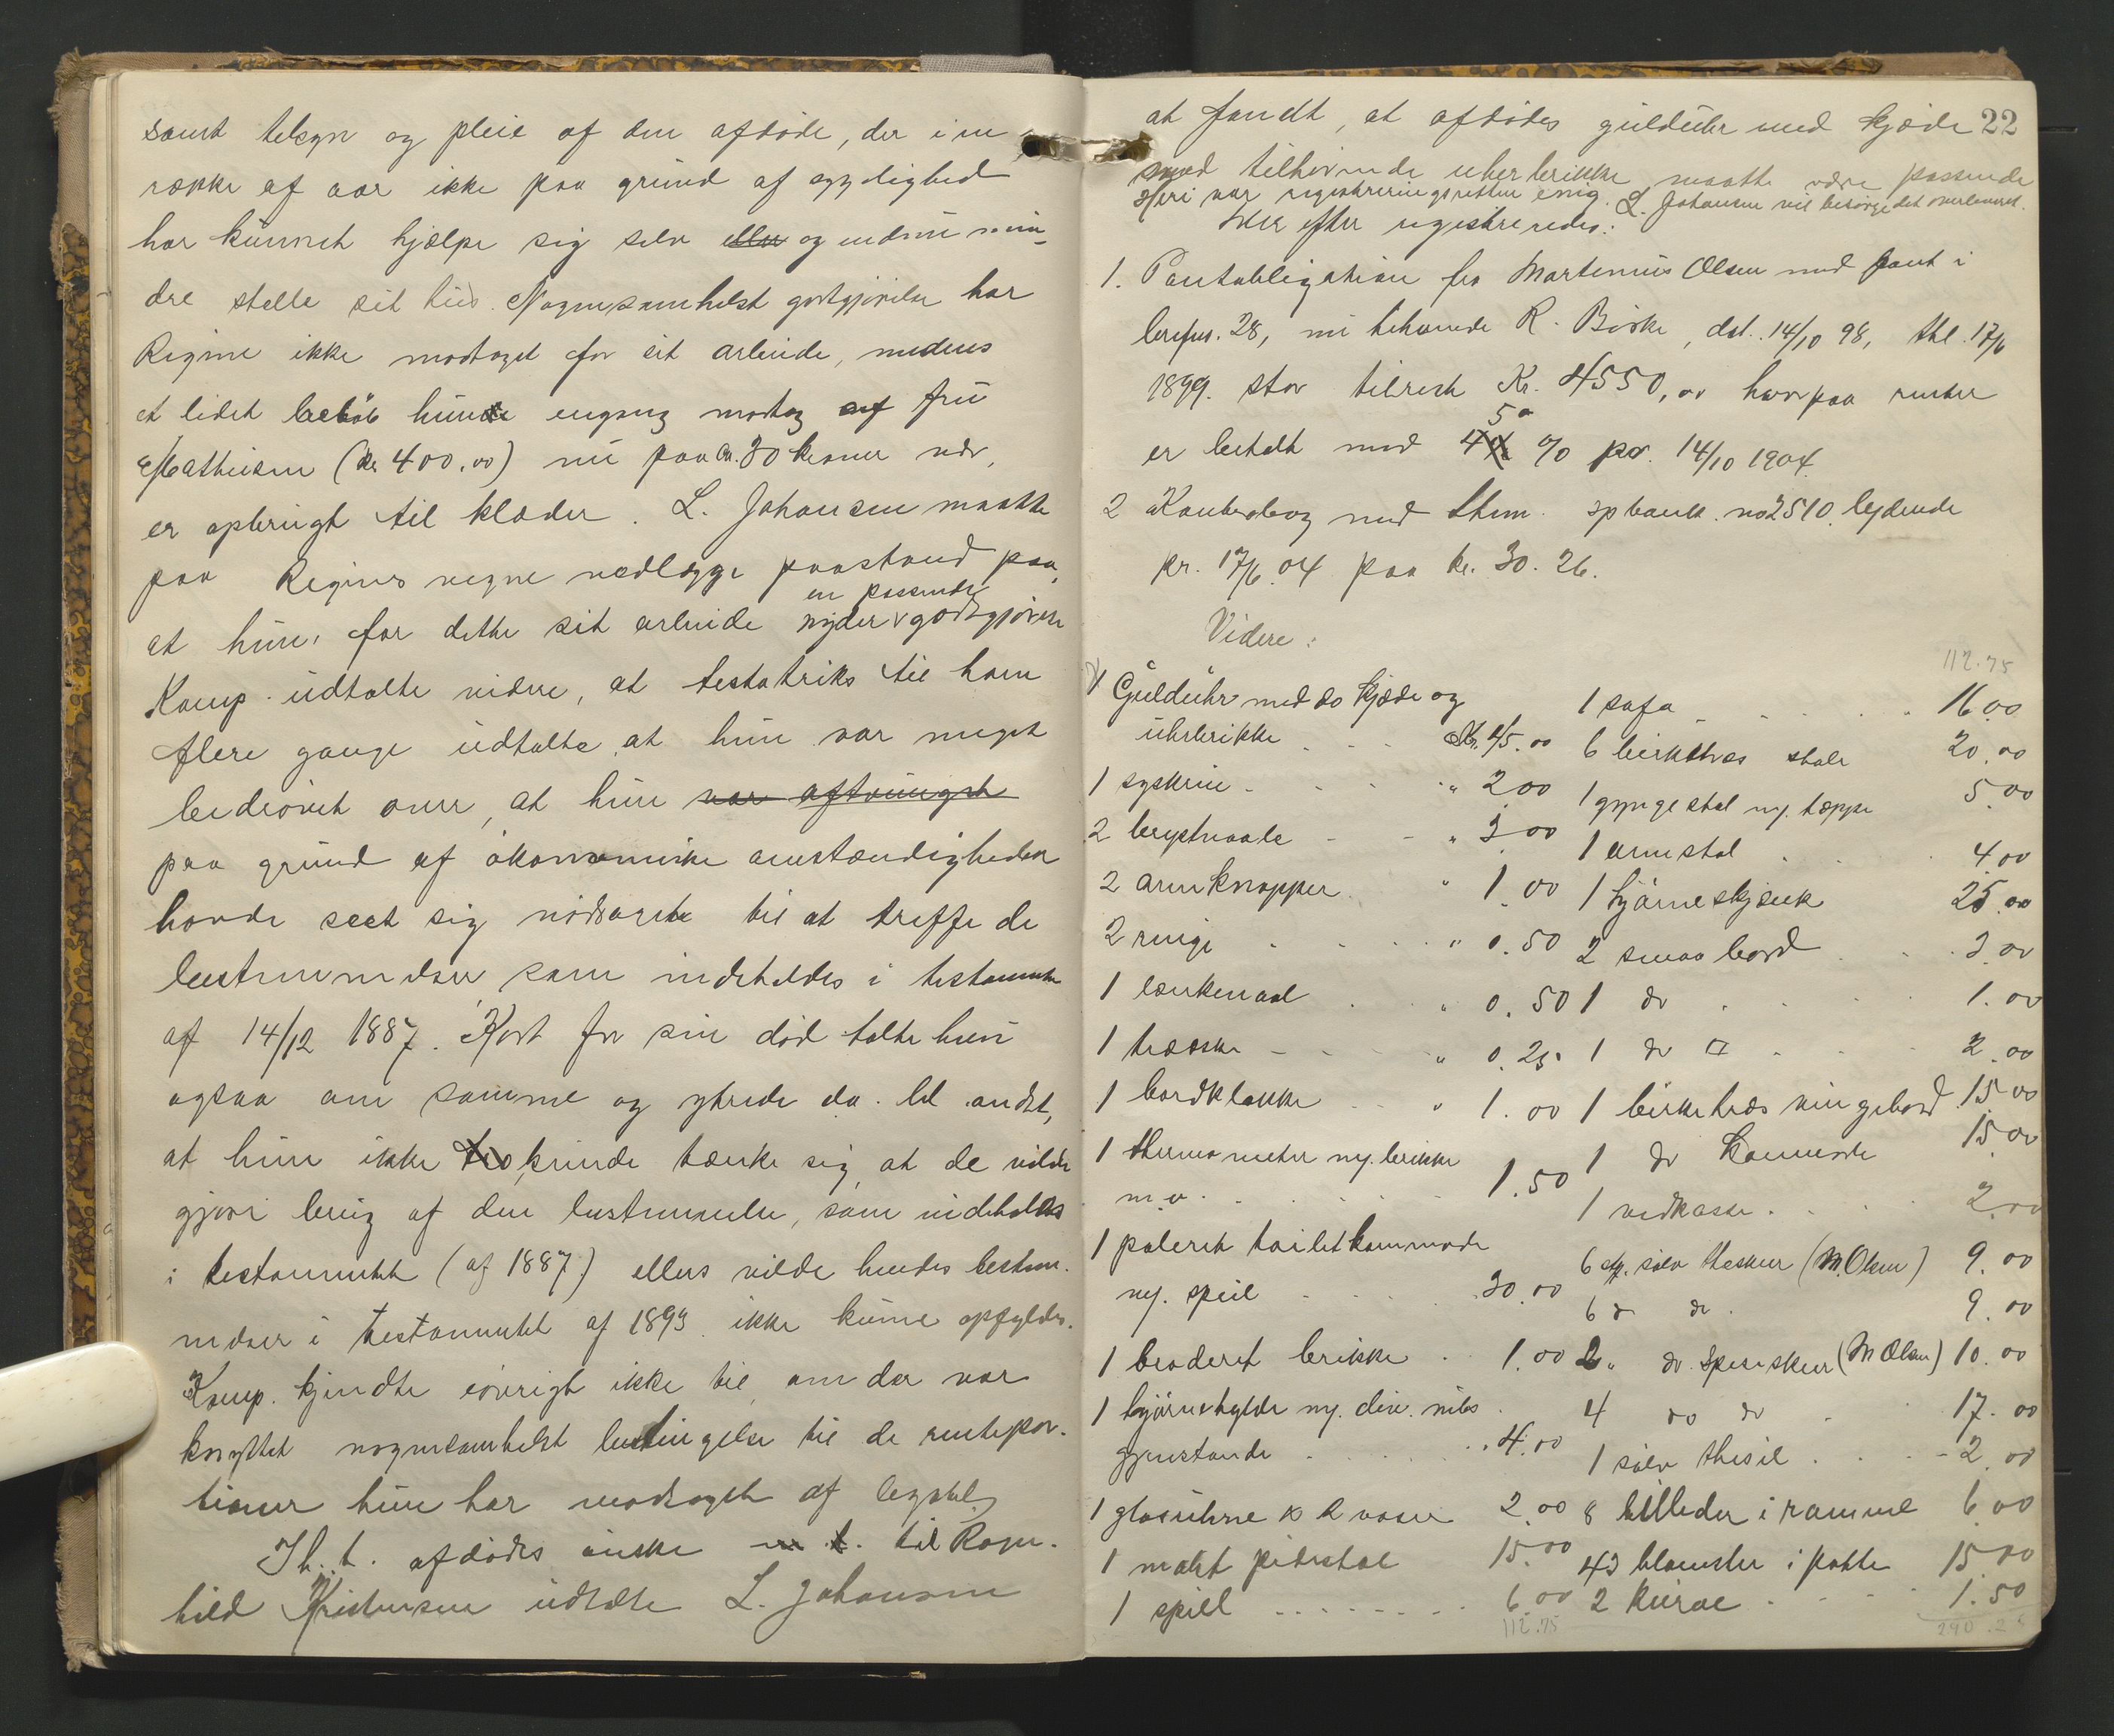 samt tilsyn og pleie af den afdøde, der i en
række af aar ikke paa grund af sygelighed
har kunnet hjælpe sig selv eller og endnu min-
dre stelle sit hus. Nogensomhelst godtgjørelse har
Regine ikke modtaget for sit arbeide, medens
et lidet beløb hun engang modtog af fru
Mathiesen (kr 400.00) nu paa ca. 30 kroner nær,
er opbrugt til klæder. L. Johansen maatte
paa Regines vegne nedlægge paastand paa,
at hun, for dette sit arbeide nyder en passende godtgjørelse
Komp. udtalte videre, at testatriks til ham
flere gange udtalte, at hun var meget
bedrøvet over, at hun var aftvunget
paa grund af økonomiske omstændigheder
havde seet sig nødsaget til at treffe de
bestemmelser som indeholdes i testamente
af 14/12 1887. Kort før sin død talte hun
ogsaa om samme og ytrede da bl. andet,
at hun ikke kunde tænke sig, at de vilde
gjøre brug af den bestemmelse, som indeholdes
i testamentet (af 1887) ellers vilde hendes bestem-
melser i testamentet af 1893 ikke kunne opfyldes.
Komp. kjendte iøvrigt ikke til, om der var
knyttet nogensomhelst betingelse til de rentepor-
tioner hun har modtaget af legatet,
Th. t. afdødes ønske m. t. til Ragn-
hild Kristensen udtalte L. Johansen
at fandt, at afdødes guldúhr med kjæde 22
med tilhørende uherbrikke maatte være passende
Heri var registreringsretten enig. L. Johansen vil besørge det overleveret.
Herefter registreredes:
1. Pantobligation fra Martinius Olsen med pant i
brnr. 28, nu tilhørende R. Biske, dat. 14/10 98, thl. 17/6
1899. stor tilrest Kr. 4550,00 hvorpaa renter
er betalt med 5% pr. 14/10 1904
2 Kontrabog med Thm. spbank. no 2510 lydende
pr. 17/6.04 paa kr. 30.26.
Videre:
112.75
1 Gulduhr med do kjæde og
uhrbrikke Kr. 45.00
1 syskrin " 2.00
2 brystnaale " 3.00
2 armknapper " 1.00
2 ringe " 0.50
1 lænkenaal " 0.50
1 træske " 0.25
1 bordklokke " 1.00
1 thermometer og brikke
m.v. 1.50
1 poleret toiletkommode
og speil 30.00
1 broderet brikke 1.00
1 hjørnehylde og div. nips
gjenstande 4.00
1 glasurne & 2 vaser 2.00
1 malet pidestal 15.00
1 speil 6.00
112.75
1 sofa 16.00
6 birketræs stole 20.00
1 gyngestol og tæppe 5.00
1 armstol 4.00
1 hjørneskjænk 25.00
2 smaa bord 3.00
1 do 1.00
1 do 2.00
1 birketræs vingebord 15.00
1 do Kommode 15.00
1 vedkasse 2.00
6 stk. sølv theskeer (M. Olsen) 9.00
6 do do 9.00
2 " do spiseskeer (M Olsen) 10.00
4 do do 17.00
1 sølv thesil 2.00
8 billeder i ramme 6.00
43 blomster i potte 15.00
2 kurve 1.50
290.25